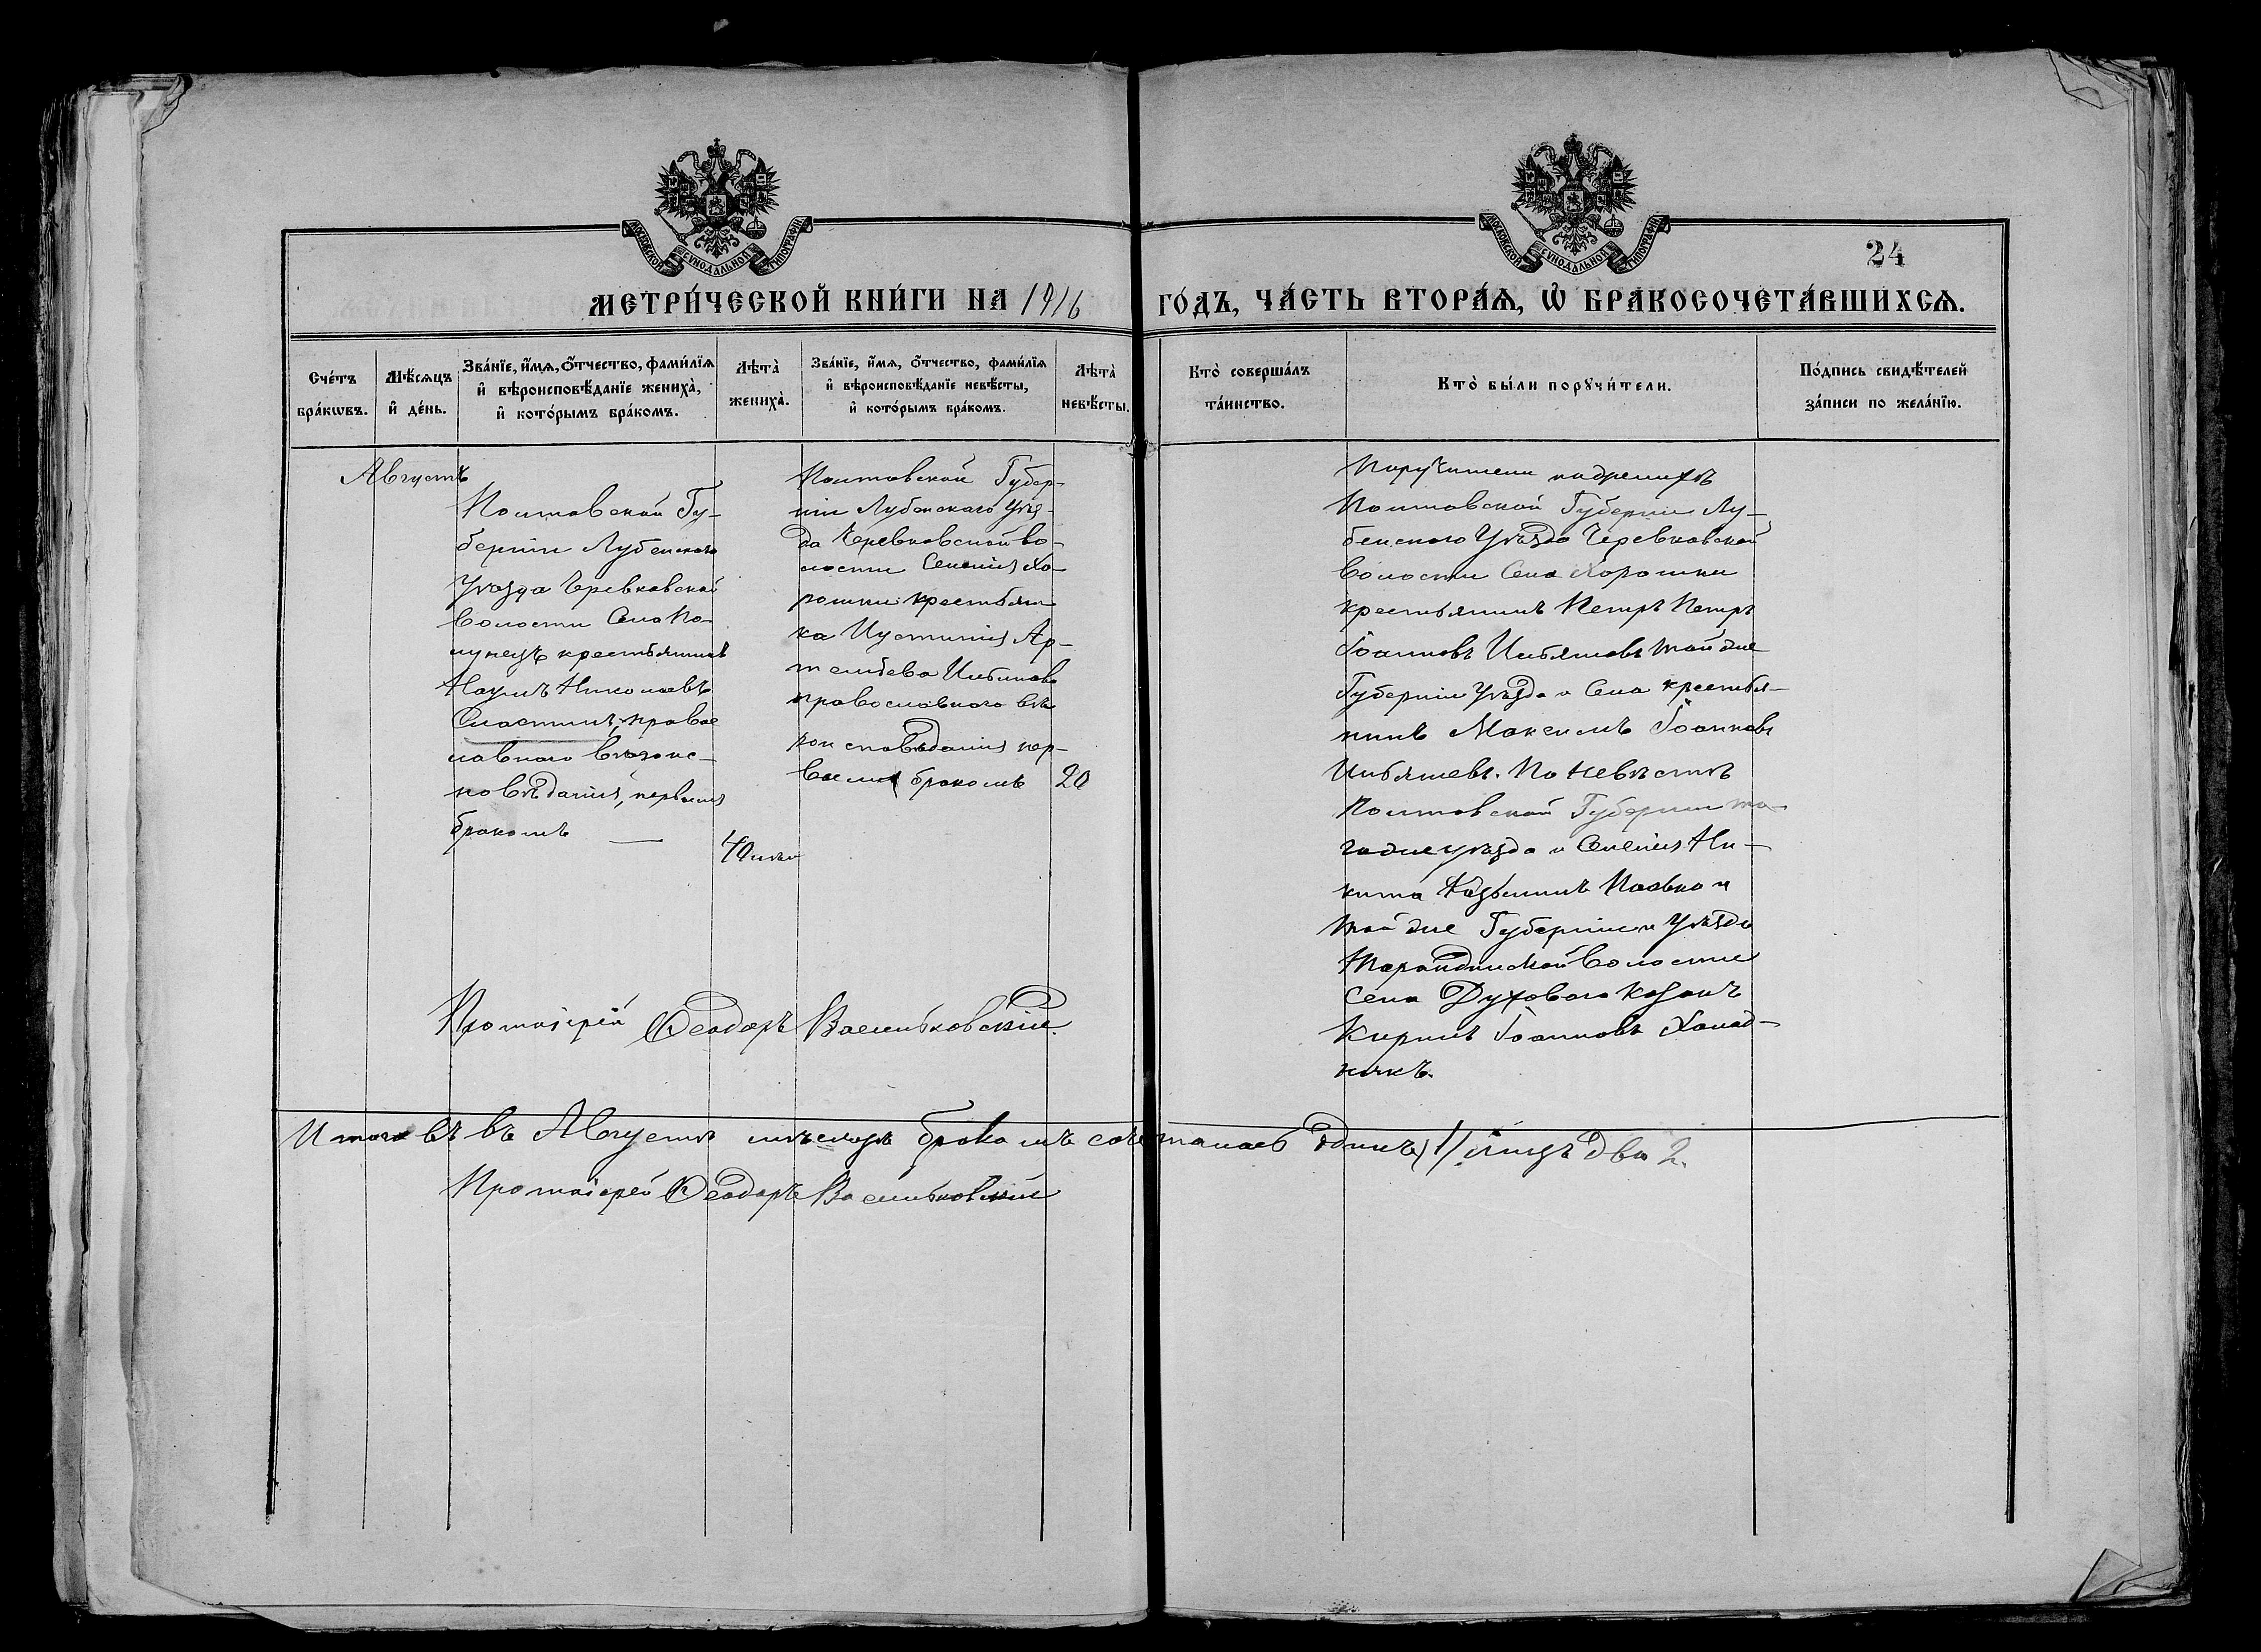 МОСКОВСКОЙ СѴНОДАЛЬНОЙ ТИПОГРАФІИ
МОСКОВСКОЙ СѴНОДАЛЬНОЙ ТИПОГРАФІИ
24
МЕТРИ́ЧЕСКОЙ КНИ́ГИ НА 1916 ГО́ДЪ, ЧА́СТЬ ВТОРА́Ѧ, Ѡ҆ БРАКОСОЧЕТА́ВШИХСѦ.
Сче́тъ
бра́кѡвъ.
Мѣ́сѧцъ
и҆ де́нь.
Зва́нїе, и҆́мѧ, ѻ҆́тчество, фами́лїѧ
и҆ вѣроисповѣ́данїе жениха̀,
и҆ кото́рымъ бра́комъ.
Лѣ́та̀
жениха̀.
Зва́нїе, и҆́мѧ, ѻ҆́тчество, фами́лїѧ
и҆ вѣроисповѣ́данїе невѣ́сты,
и҆ кото́рымъ бра́комъ.
Лѣ́та̀
невѣ́сты.
Кто̀ соверша́лъ
та́инство.
Кто̀ бы́ли порꙋчи́тели.
По́дпись свидѣ́телей
за́писи по жела́нїю.
Августъ
Полтавской Гу-
берніи Лубенскаго
Уѣзда Черевковской
Волости Села
крестьянинъ
Наумъ Николаевъ
Сластинъ, правос
лавнаго вѣроис-
повѣданія, первымъ
бракомъ —
40
Полтавской Губер-
ніи Лубенскаго Уѣз-
да Черевковской во-
лости Селенія Хо-
рошки крестьян
ка Иустинія Ар-
темьева
православнаго вѣ
роисповѣданія пер-
вымъ бракомъ
20
Протоіерей Ѳеодоръ Васильковскій.
Поручители
Полтавской Губерніи Лу-
бенскаго Уѣзда Черевковской
Волости Села Хорошки
крестьянинъ Петръ Петръ
Іоанновъ той же
Губерніи Уѣзда и Села крестья-
нинъ Максимъ Іоанновъ
По Невѣстѣ
Полтавской Губерніи то-
го же уѣзда и Селенія Ни-
кита и
той же Губерніи и Уѣзда
Волости
Села Духоваго Козакъ
Кирилъ Іоанновъ
Итого въ въ Августѣ мѣсяцѣ бракомъ сочеталось Одинъ 1/ лицъ два 2.
Протоіерей Ѳеодоръ Васильковскій